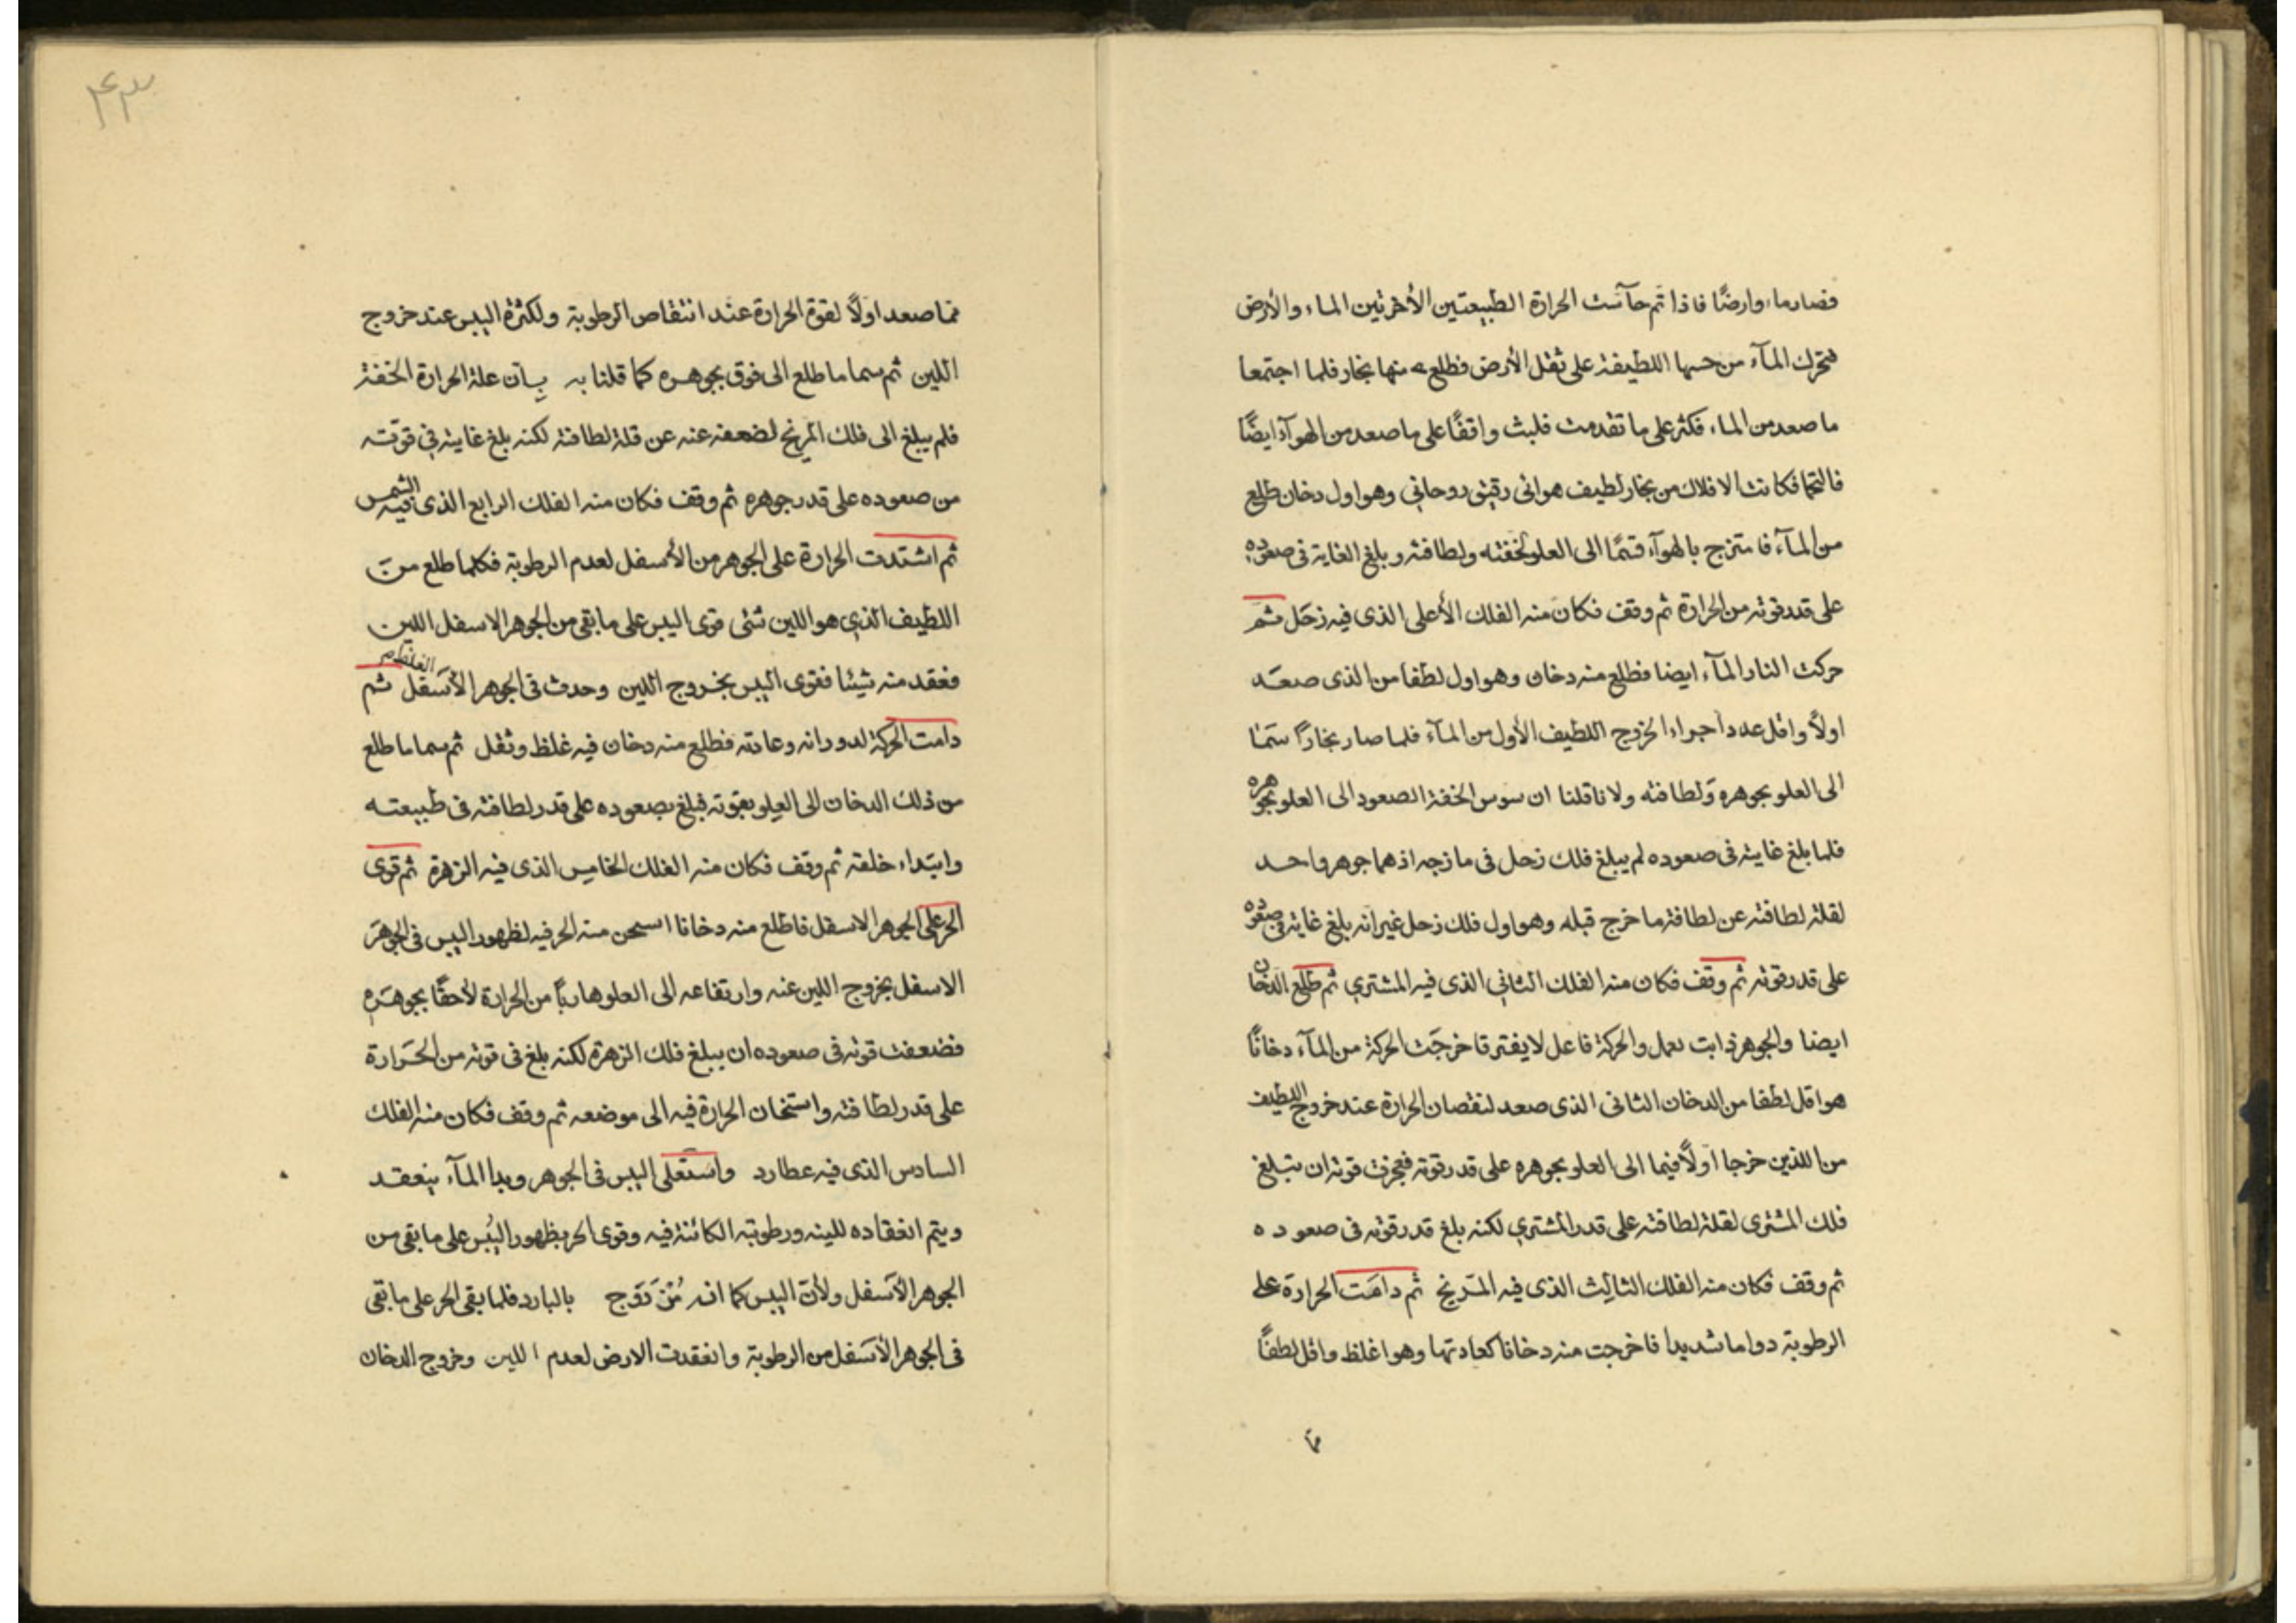 فصار ماء وارضًا فاذا تم حآست الحرارة الطبيعتين الأخرتين الماء والأرض
فتحرك المآء من حسها اللطيفة على ثقل الأرض فطلع منها بخار فلما اجتمعا
ما صعد من الماء فكثر على ما تقدمت فلبث واقفًا على ما صعد من الهوآء ايضًا
فالتحما فكانت الافلاك من بخار لطيف هوائى رقيق روحاني وهو اول دخان طلع
من المآء فامتزج بالهوآء فتمًا الى العلو لخفته ولطافته وبلغ الغاية فى صعوده
على قدر قوته من الحرارة ثم وقف فكان منه الفلك الأعلى الذى فيه زحَل ثم
حركت النار المآء ايضا فطلع منه دخان وهو اول لطفا من الذى صعَد
اولًا واقل عددا اجراء لخروج اللطيف الأول من المآء فلما صار بخارًا سَما
الى العلو بجوهره وَلطافته ولانا قلنا ان سوس الخفة الصعود الى العلو بجوهره
فلما بلغ غايته فى صعوده لم يبلغ فلك زحل فى مازجه اذهما جوهر واحد
لقلة لطافته عن لطافة ما خرج قبله وهو اول فلك زحل غير انه بلغ غايته فى صعوده
على قدر قوته ثم وقف فكان منه الفلك الثاني الذى فيه المشتري ثم طلع الدخان
ايضا والجوهر ذابت يعمل والحركة فاعل لا يفتر فاخرجَت الحركة من المآء دخانًا
هو اقل لطفا من الدخان الثانى الذى صعد لنقصان الحرارة عند خروج اللطيف
من اللذين خرجا اولًا فيما الى العلو بجوهره على قدر قوته فعجزت قوته ان تبلغ
فلك المشترى لقلة لطافته على قدر المشتري لكنه بلغ قدر قوته فى صعوده
ثم وقف فكان منه الفلك الثالث الذى فيه المرّيخ ثم دامَت الحرارة على
الرطوبة دواما شديدا فاخرجت منه دخانا كعادتها وهو اغلظ واقل لطفًا
مما
٤٣
مما صعد اولًا لقوة الحرارة عند انتقاص الرطوبة ولكثرة اليبس عند خروج
اللين ثم سما ما طلع الى فوق بجوهره كما قلنا به بِان علة الحرارة الخفة
فلم يبلغ الى فلك المريخ لضعفه عنه عن قلة لطافته لكنه بلغ غايته في قوّته
من صعوده على قدر جوهره ثم وقف فكان منه الفلك الرابع الذى فيه الشمس
ثم اشتدت الحرارة على الجوهر من الأسفل لعدم الرطوبة فكلما طلع من
اللطيف الذي هو اللين شئى قوى اليبس على ما بقى من الجوهر الاسفل اللين
فعقد منه شيئا فقوى اليبس بخروج اللين وحدث فى الجوهر الأسَفل الغلظ ثم
دامت الحركة لدورانه وعادته فطلع منه دخان فيه غلظ وثقل ثم سما ما طلع
من ذلك الدخان الى العلو بقوته فبلغ بصعوده على قدر لطافته فى طبيعته
وابتداء خلقته ثم وقف فكان منه الفلك الخامس الذى فيه الزهرة ثم قوى
الحر على الجوهر الاسفل فاطلع منه دخانا اسخن منه الحر فيه لظهور اليبس فى الجوهَر
الاسفل بخروج اللين عنه وارتفاعه الى العلو هاربًا من الحرارة لأحقًا بجوهَره
فضعفت قوته فى صعوده ان يبلغ فلك الزهرة لكنه بلغ فى قوته من الحَرارة
على قدر لطافته واستخان الحرارة فيه الى موضعه ثم وقف فكان منه الفلك
السادس الذى فيه عطارد واستَعلى اليبس فى الجوهر وبدا المآء ينعقد
ويتم انعقاده للينه ورطوبته الكائنة فيه وقوى الحر بظهور اليُبس على ما بقى من
الجوهر الأسَفل ولأن اليبس كما انه مُزَدَوج بالبارد فلما بقى الحر على ما بقى
فى الجوهر الأسَفل من الرطوبة وانعقدت الارض لعدم اللين وخروج الدخان